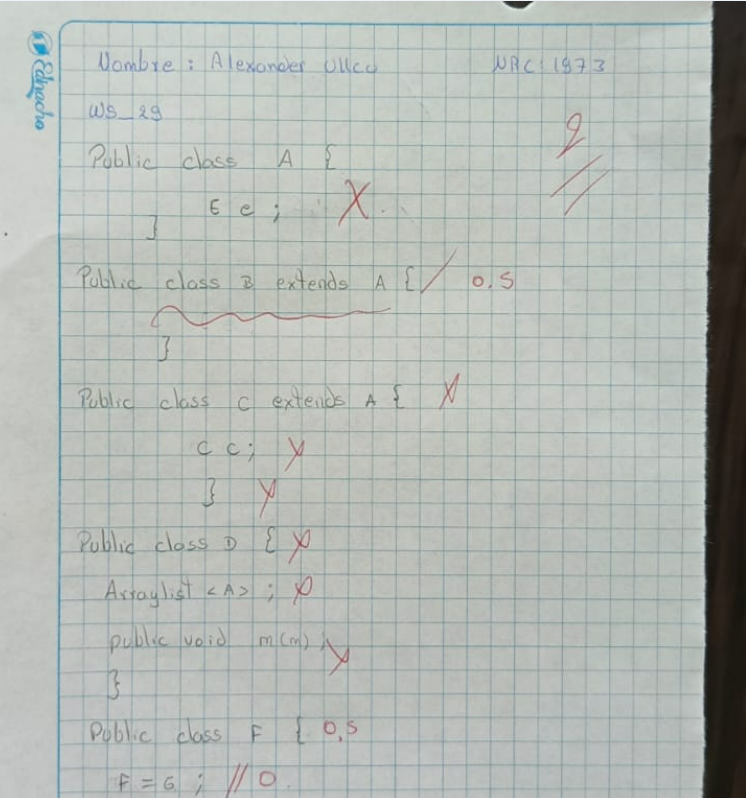 Ednacho
Nombre : Alexander Ullco NRC: 1973
WS_29
2
Public class A {
E e ; X
}
Public class B extends A { / 0.5
}
Public class C extends A { X
C c; X
} X
Public class D { X
Arraylist <A> ; X
public void m(m) ; X
}
Public class F { 0,5
F = G ; // 0.